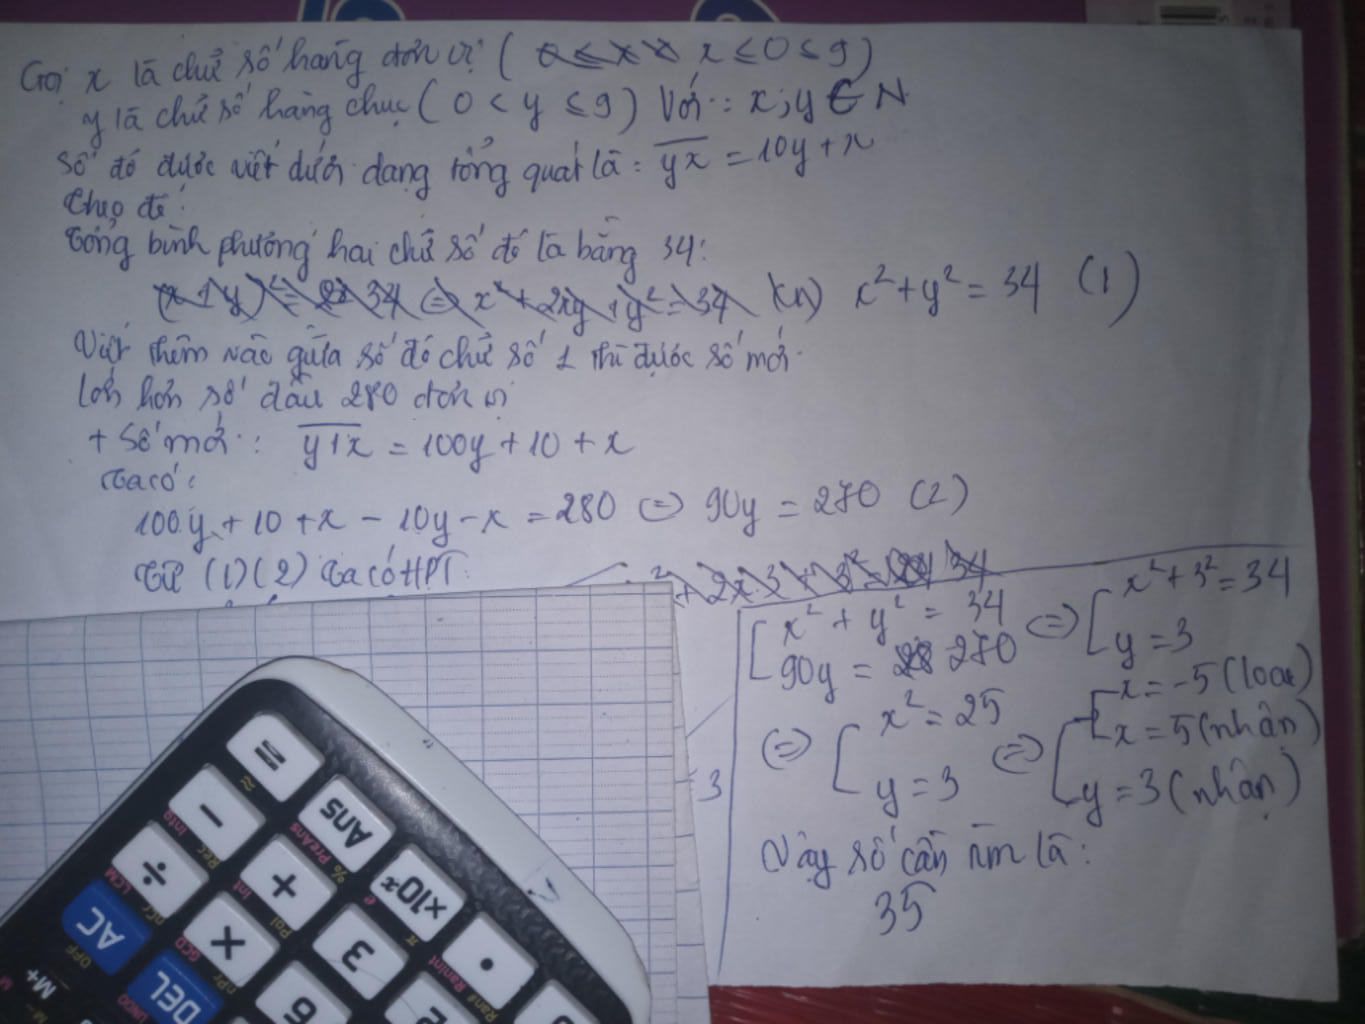 Gọi x là chữ số hàng đơn vị ( x ≤ 0 ≤ 9)
y là chữ số hàng chục ( 0 < y ≤ 9) Với: x; y ∈ N
Số đó được viết dưới dạng tổng quát là: \overline{yx} = 10y + x
Theo đề:
Tổng bình phương hai chữ số đó là bằng 34:
x² + y² = 34 (1)
Viết thêm vào giữa số đó chữ số 1 thì được số mới
lớn hơn số đầu 280 đơn vị
+ Số mới: \overline{y1x} = 100y + 10 + x
Ta có:
100y + 10 + x - 10y - x = 280 ⇔ 90y = 270 (2)
Từ (1)(2) Ta có HPT:
[ x² + y² = 34
90y = 270
⇔ [ x² + 3² = 34
y = 3
⇔ [ x² = 25
y = 3
⇔ [ [ x = -5 (loại)
x = 5 (nhận)
y = 3 (nhận)
= 3
Vậy số cần tìm là:
35
=
≈
−
Ans
PreAns
%
÷
Into
Rec
+
Int
Pol
×10ˣ
e
π
LCM
nCr
AC
OFF
×
GCD
nPr
3
•
RanInt
Ran#
DEL
UNDO
6
2
0
M+
M−
M